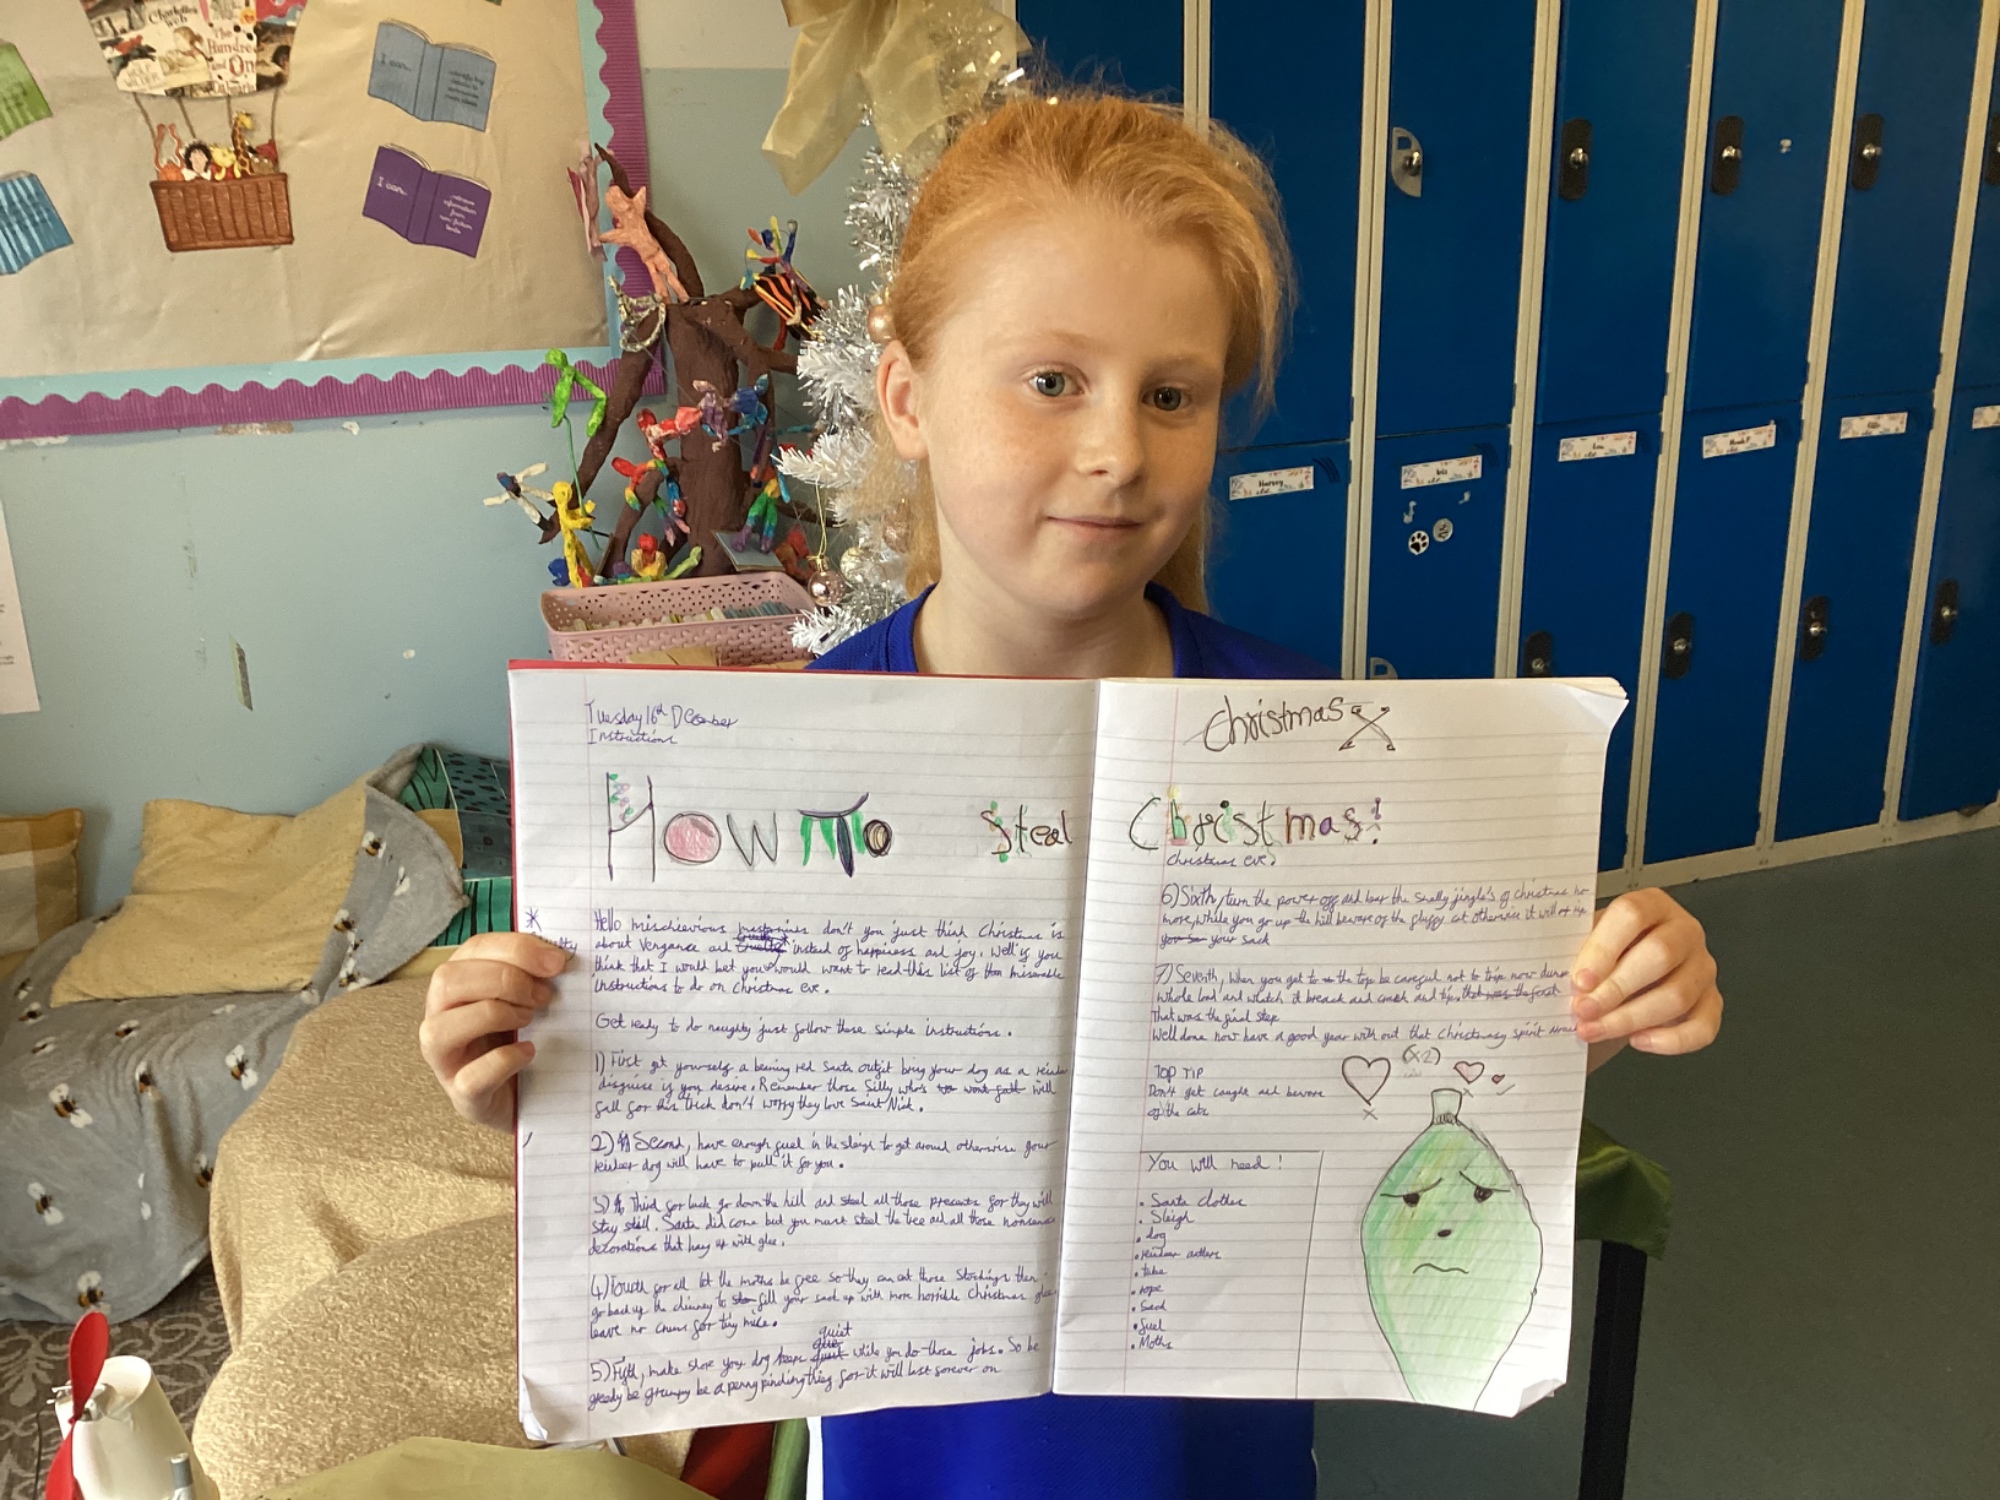 Charlotte's
Web
The
Hundred
and One
Dalmatians
I can...
I can...
retrieve
information
from
non-fiction
texts
Harvey
Iris
Tuesday 16th December
Instructions
Christmas
How To Steal Christmas!
Hello mischievious don't you just think Christmas is
about vengance and cruelty instead of happiness and joy. Well if you
think that I would bet you would want to read this list of miserable
instructions to do on Christmas eve.
Get ready to do naughty just follow these simple instructions.
1) First get yourself a beaming red Santa outfit bring your dog as a reinde
disguise if you desire. Remember those silly who's will
fall for this trick don't worry they love Saint Nick.
2) Second, have enough fuel in the sleigh to get around otherwise your
reindeer dog will have to pull it for you.
3) Third for luck go down the hill and steal all those presents for they will
stay still. Santa did come but you must steal the tree and all those nonsense
decorations that hang up with glee.
4) Fourth for all let the moths be free so they can eat those stockings then
go back up the chimney to fill your sack up with more horrible Christmas glee
leave no crums for tiny mice.
quiet
5) Fifth, make shore your dog keeps while you do those jobs. So be
greedy be grumpy be a penny pinching thing for it will last forever on
christmas eve.
6) Sixth, turn the power off and hear the smelly jingle's of christmas no
more, while you go up the hill beware of the fluffy cat otherwise it will rip
your sack
7) Seventh, when you get to the top be careful not to trip now dump
whole load and watch it break and crash and tip. that was the first
That was the final step
Well done now have a good year with out that Christmasy spirit around
(x2)
TOP TIP
Don't get caught and beware
of the cats
You will need!
• Santa clothes
• Sleigh
• dog
• reindeer antlers
• tape
• rope
• Sack
• fuel
• Moths